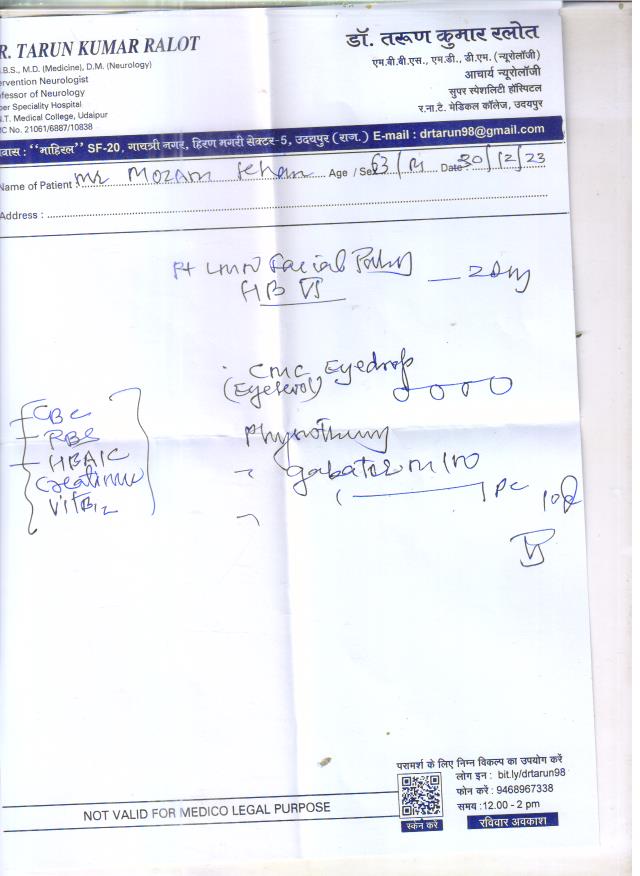 R. TARUN KUMAR RALOT
.B.S., M.D. (Medicine), D.M. (Neurology)
ervention Neurologist
ofessor of Neurology
per Speciality Hospital
.T. Medical College, Udaipur
C No. 21061/6887/10838
डॉ. तरूण कुमार रलोत
एम.बी.बी.एस., एम.डी., डी.एम. (न्यूरोलॉजी)
आचार्य न्यूरोलॉजी
सुपर स्पेशलिटी हॉस्पिटल
र.ना.टै. मेडिकल कॉलेज, उदयपुर
वास : "माहिरल" SF-20, गायत्री नगर, हिरण मगरी सेक्टर-5, उदयपुर (राज.) E-mail : drtarun98@gmail.com
Name of Patient Mr Mozam Age / Sex 63/M Date 30/12/23
Address :
LMN Facial Palsy
HB VI
CMC Eyedrop
Physiotherapy
PC
CBC
RBS
HBA1C
Creatinine
Vit B12
परामर्श के लिए निम्न विकल्प का उपयोग करें
लोग इन : bit.ly/drtarun98
फोन करें : 9468967338
समय : 12.00 - 2 pm
स्कॅन करें
रविवार अवकाश
NOT VALID FOR MEDICO LEGAL PURPOSE